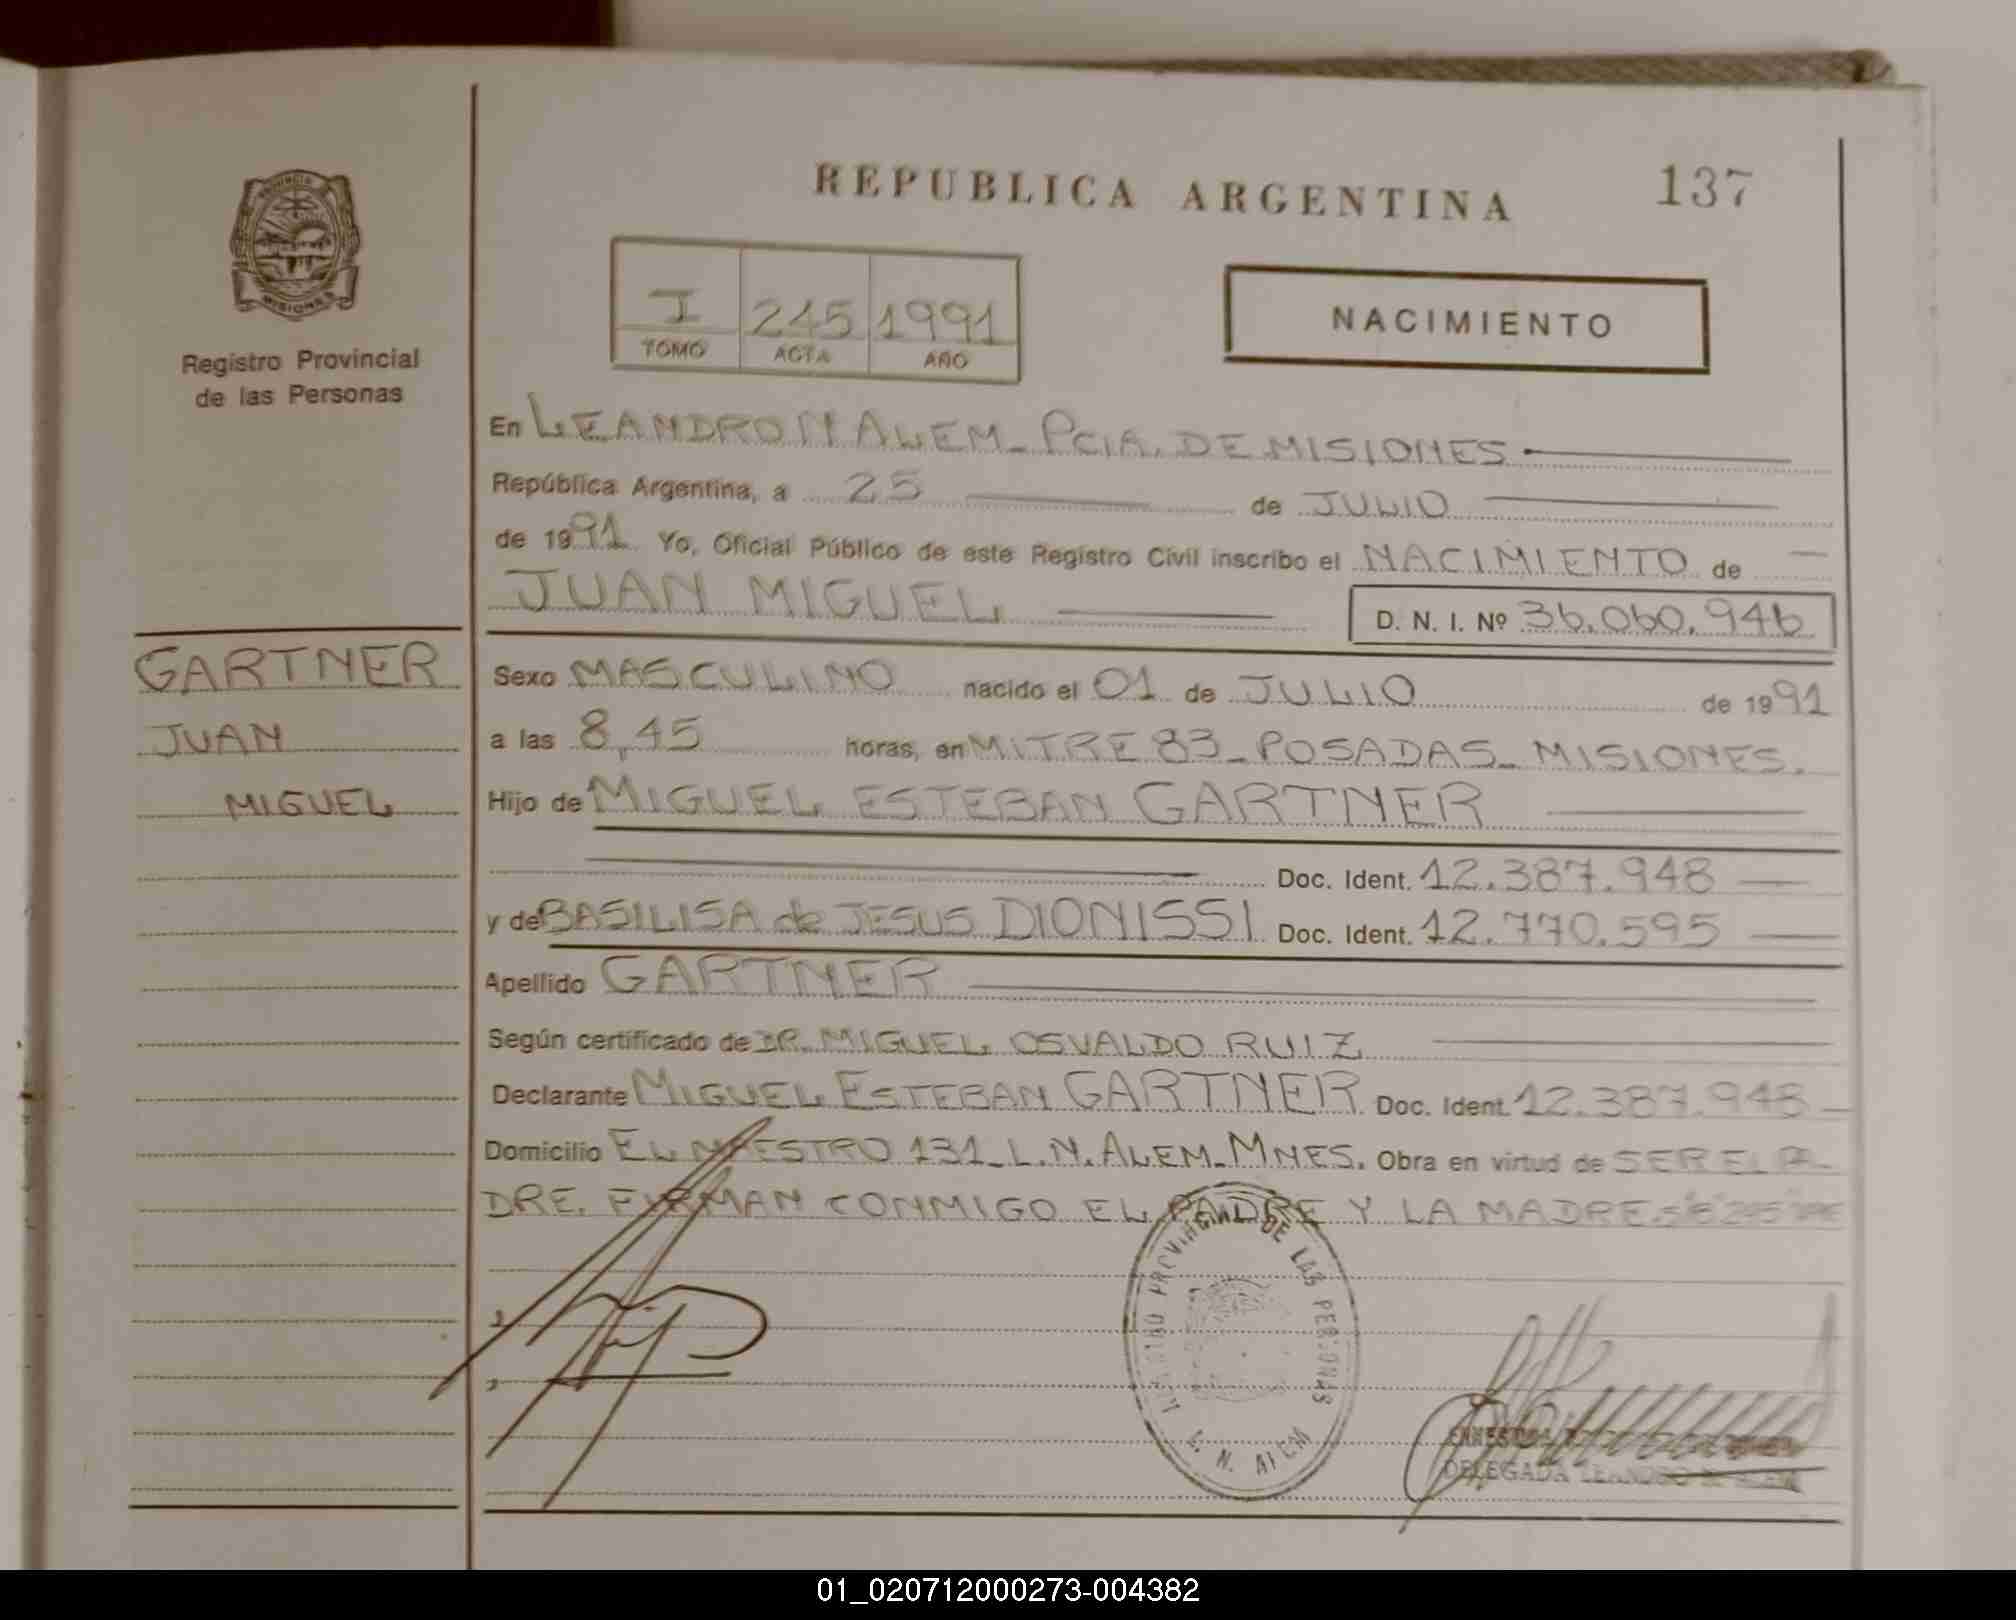 REPUBLICA ARGENTINA
137
PROVINCIA
MISIONES
Registro Provincial
de las Personas
I 245 1991
TOMO ACTA AÑO
NACIMIENTO
En LEANDRO N ALEM_ PCIA. DE MISIONES
República Argentina, a 25 de JULIO
de 1991 Yo, Oficial Público de este Registro Civil inscribo el NACIMIENTO de
JUAN MIGUEL D. N. I. Nº 36.060.946
GARTNER
JUAN
MIGUEL
Sexo MASCULINO nacido el 01 de JULIO de 1991
a las 8,45 horas, en MITRE 83_ POSADAS_ MISIONES.
Hijo de MIGUEL ESTEBAN GARTNER
Doc. Ident. 12.387.948
y de BASILISA de JESUS DIONISSI Doc. Ident. 12.770.595
Apellido GARTNER
Según certificado de DR. MIGUEL OSVALDO RUIZ
Declarante MIGUEL ESTEBAN GARTNER Doc. Ident. 12.387.948
Domicilio EL MAESTRO 131_ L.N. ALEM_ MNES. Obra en virtud de SER EL PA_
DRE. FIRMAN CONMIGO EL PADRE Y LA MADRE
PROVINCIAL DE LAS PERSONAS
L. N. ALEM
DELEGADA LEANDRO N. ALEM
01_020712000273-004382